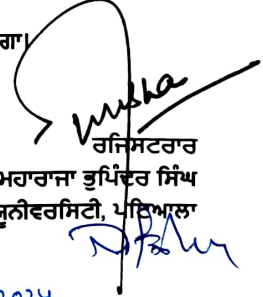 ਗਾ।
ਰਜਿਸਟਰਾਰ
ਮਹਾਰਾਜਾ ਭੁਪਿੰਦਰ ਸਿੰਘ
ਯੂਨੀਵਰਸਿਟੀ, ਪਟਿਆਲਾ
2024